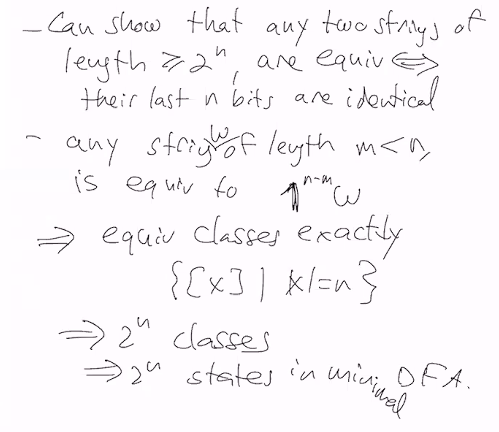 - Can show that any two strings of
length ≥ 2^n, are equiv ⇔
their last n bits are identical
- any string w of length m < n,
is equiv to 1^{n-m} ω
⇒ equiv classes exactly
{[x] | |x|=n}
⇒ 2^n classes
⇒ 2^n states in minimal DFA.